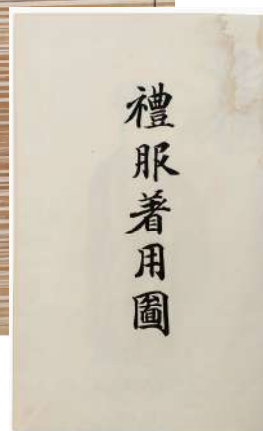 禮服著用圖